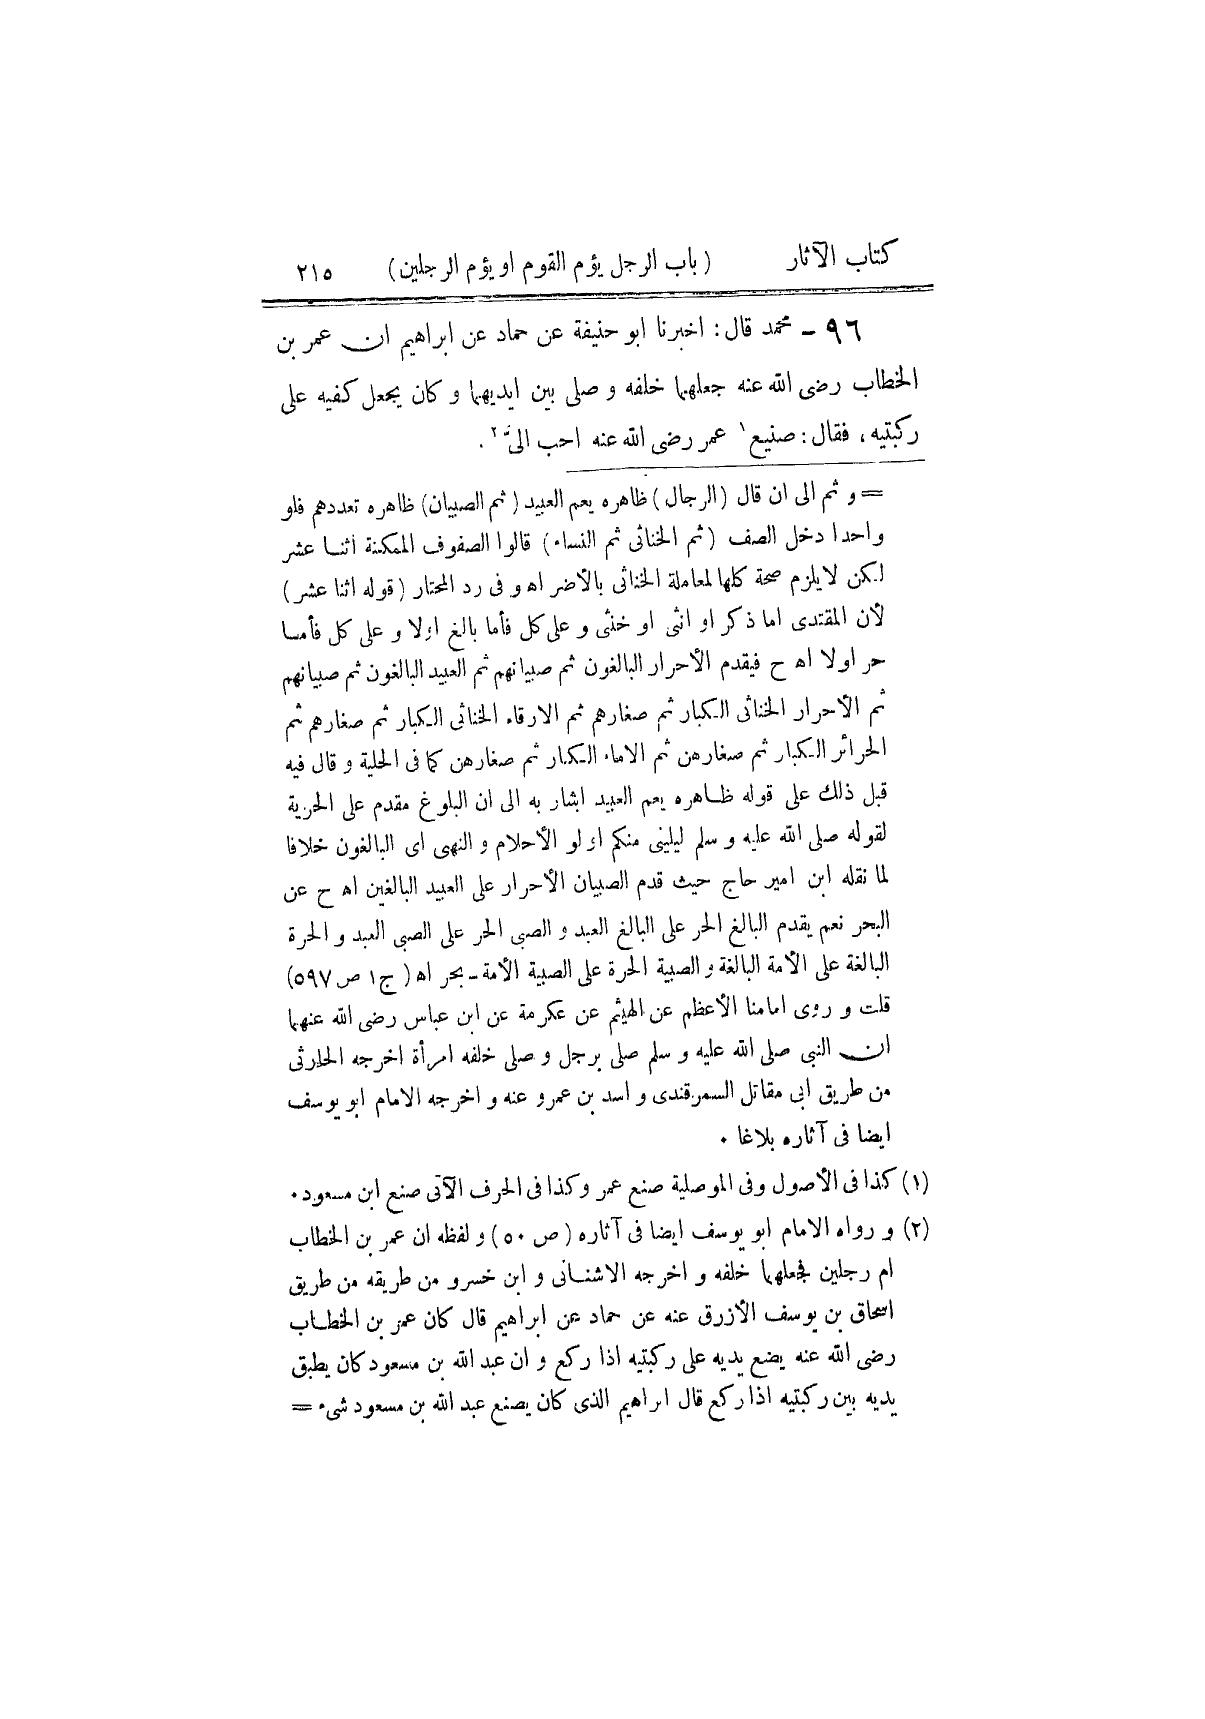 كتاب الآثار ( باب الرجل يؤم القوم او يؤم الرجلين ) ٢١٥
٩٦ - محمد قال : اخبرنا ابو حنيفة عن حماد عن ابراهيم ان عمر بن
الخطاب رضى الله عنه جعلهما خلفه و صلى بين ايديهما و كان يجعل كفيه على
ركبتيه ، فقال : صنيع١ عمر رضى الله عنه احب الىّ٢ .
= و ثم الى ان قال ( الرجال ) ظاهره يعم العبيد ( ثم الصبيان ) ظاهره تعددهم فلو
واحدا دخل الصف ( ثم الخناثى ثم النساء ) قالوا الصفوف الممكنة اثنا عشر
لكن لا يلزم صحة كلها لمعاملة الخناثى بالأضر اه و فى رد المحتار ( قوله اثنا عشر )
لأن المقتدى اما ذكر او انثى او خنثى و على كل فأما بالغ اولا و على كل فأما
حر اولا اه ح فيقدم الأحرار البالغون ثم صبيانهم ثم العبيد البالغون ثم صبيانهم
ثم الأحرار الخناثى الكبار ثم صغارهم ثم الارقاء الخناثى الكبار ثم صغارهم ثم
الحرائر الكبار ثم صغارهن ثم الاماء الكبار ثم صغارهن كما فى الحلية و قال فيه
قبل ذلك على قوله ظاهره يعم العبيد اشار به الى ان البلوغ مقدم على الحرية
لقوله صلى الله عليه و سلم ليلينى منكم اولو الأحلام و النهى اى البالغون خلافا
لما نقله ابن امير حاج حيث قدم الصبيان الأحرار على العبيد البالغين اه ح عن
البحر نعم يقدم البالغ الحر على البالغ العبد و الصبى الحر على الصبى العبد و الحرة
البالغة على الأمة البالغة و الصبية الحرة على الصبية الأمة - بحر اه ( ج ١ ص ٥٩٧ )
قلت و روى امامنا الأعظم عن الهيثم عن عكرمة عن ابن عباس رضى الله عنهما
ان النبى صلى الله عليه و سلم صلى برجل و صلى خلفه امرأة اخرجه الحارثى
من طريق ابى مقاتل السمرقندى و اسد بن عمرو عنه و اخرجه الامام ابو يوسف
ايضا فى آثاره بلاغا .
(١) كذا فى الأصول وفى الموصلية صنع عمر وكذا فى الحرف الآتى صنع ابن مسعود .
(٢) و رواه الامام ابو يوسف ايضا فى آثاره ( ص ٥٠ ) و لفظه ان عمر بن الخطاب
ام رجلين فجعلهما خلفه و اخرجه الاشنانى و ابن خسرو من طريقه من طريق
اسحاق بن يوسف الأزرق عنه عن حماد عن ابراهيم قال كان عمر بن الخطاب
رضى الله عنه يضع يديه على ركبتيه اذا ركع و ان عبد الله بن مسعود كان يطبق
يديه بين ركبتيه اذا ركع قال ابراهيم الذى كان يصنع عبد الله بن مسعود شىء =